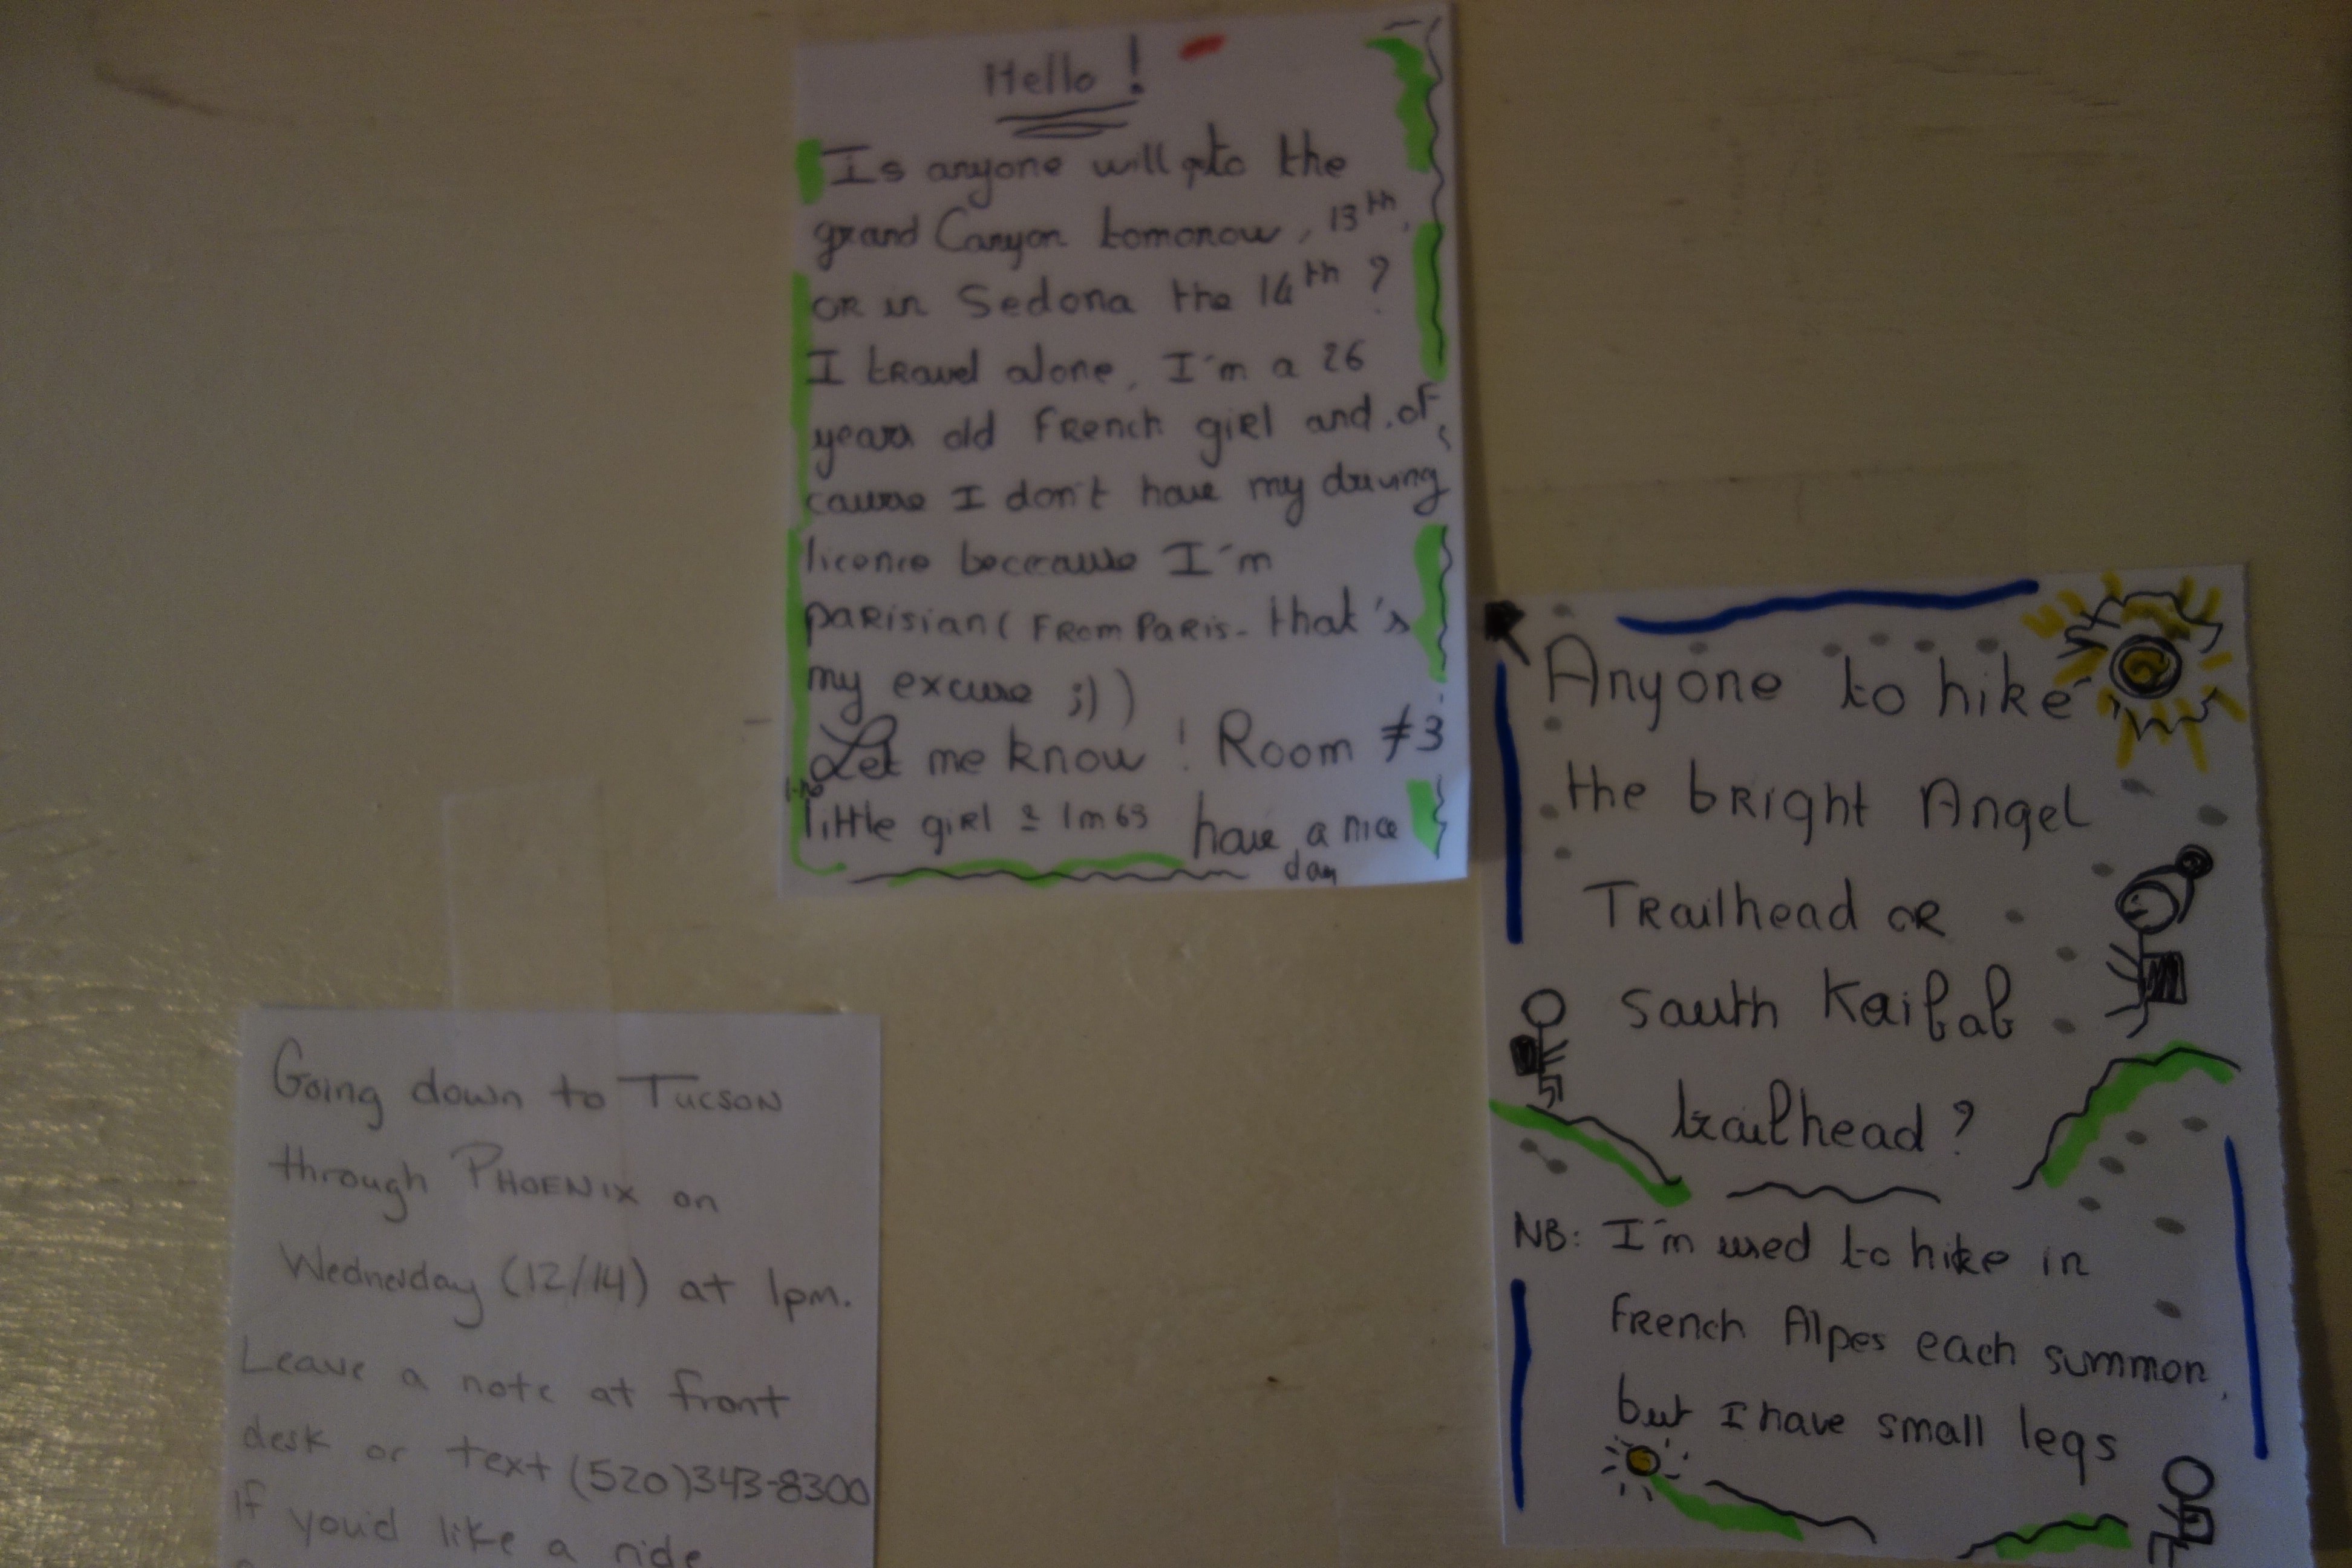 Hello !
Is anyone will go to the
grand Canyon tomorrow, 13th,
OR in Sedona the 14th ?
I travel alone, I'm a 26
years old French girl and of
cause I don't have my driving
licence beccause I'm
parisian ( From Paris - that's
my excuse ;) )
Let me know ! Room #3
little girl = 1m63 have a nice
day
Anyone to hike
the bright Angel
Trailhead or
South Kaibab
trailhead ?
NB: I'm used to hike in
French Alpes each summer,
but I have small legs
Going down to Tucson
through Phoenix on
Wednesday (12/14) at 1pm.
Leave a note at front
desk or text (520)343-8300
if you'd like a ride.